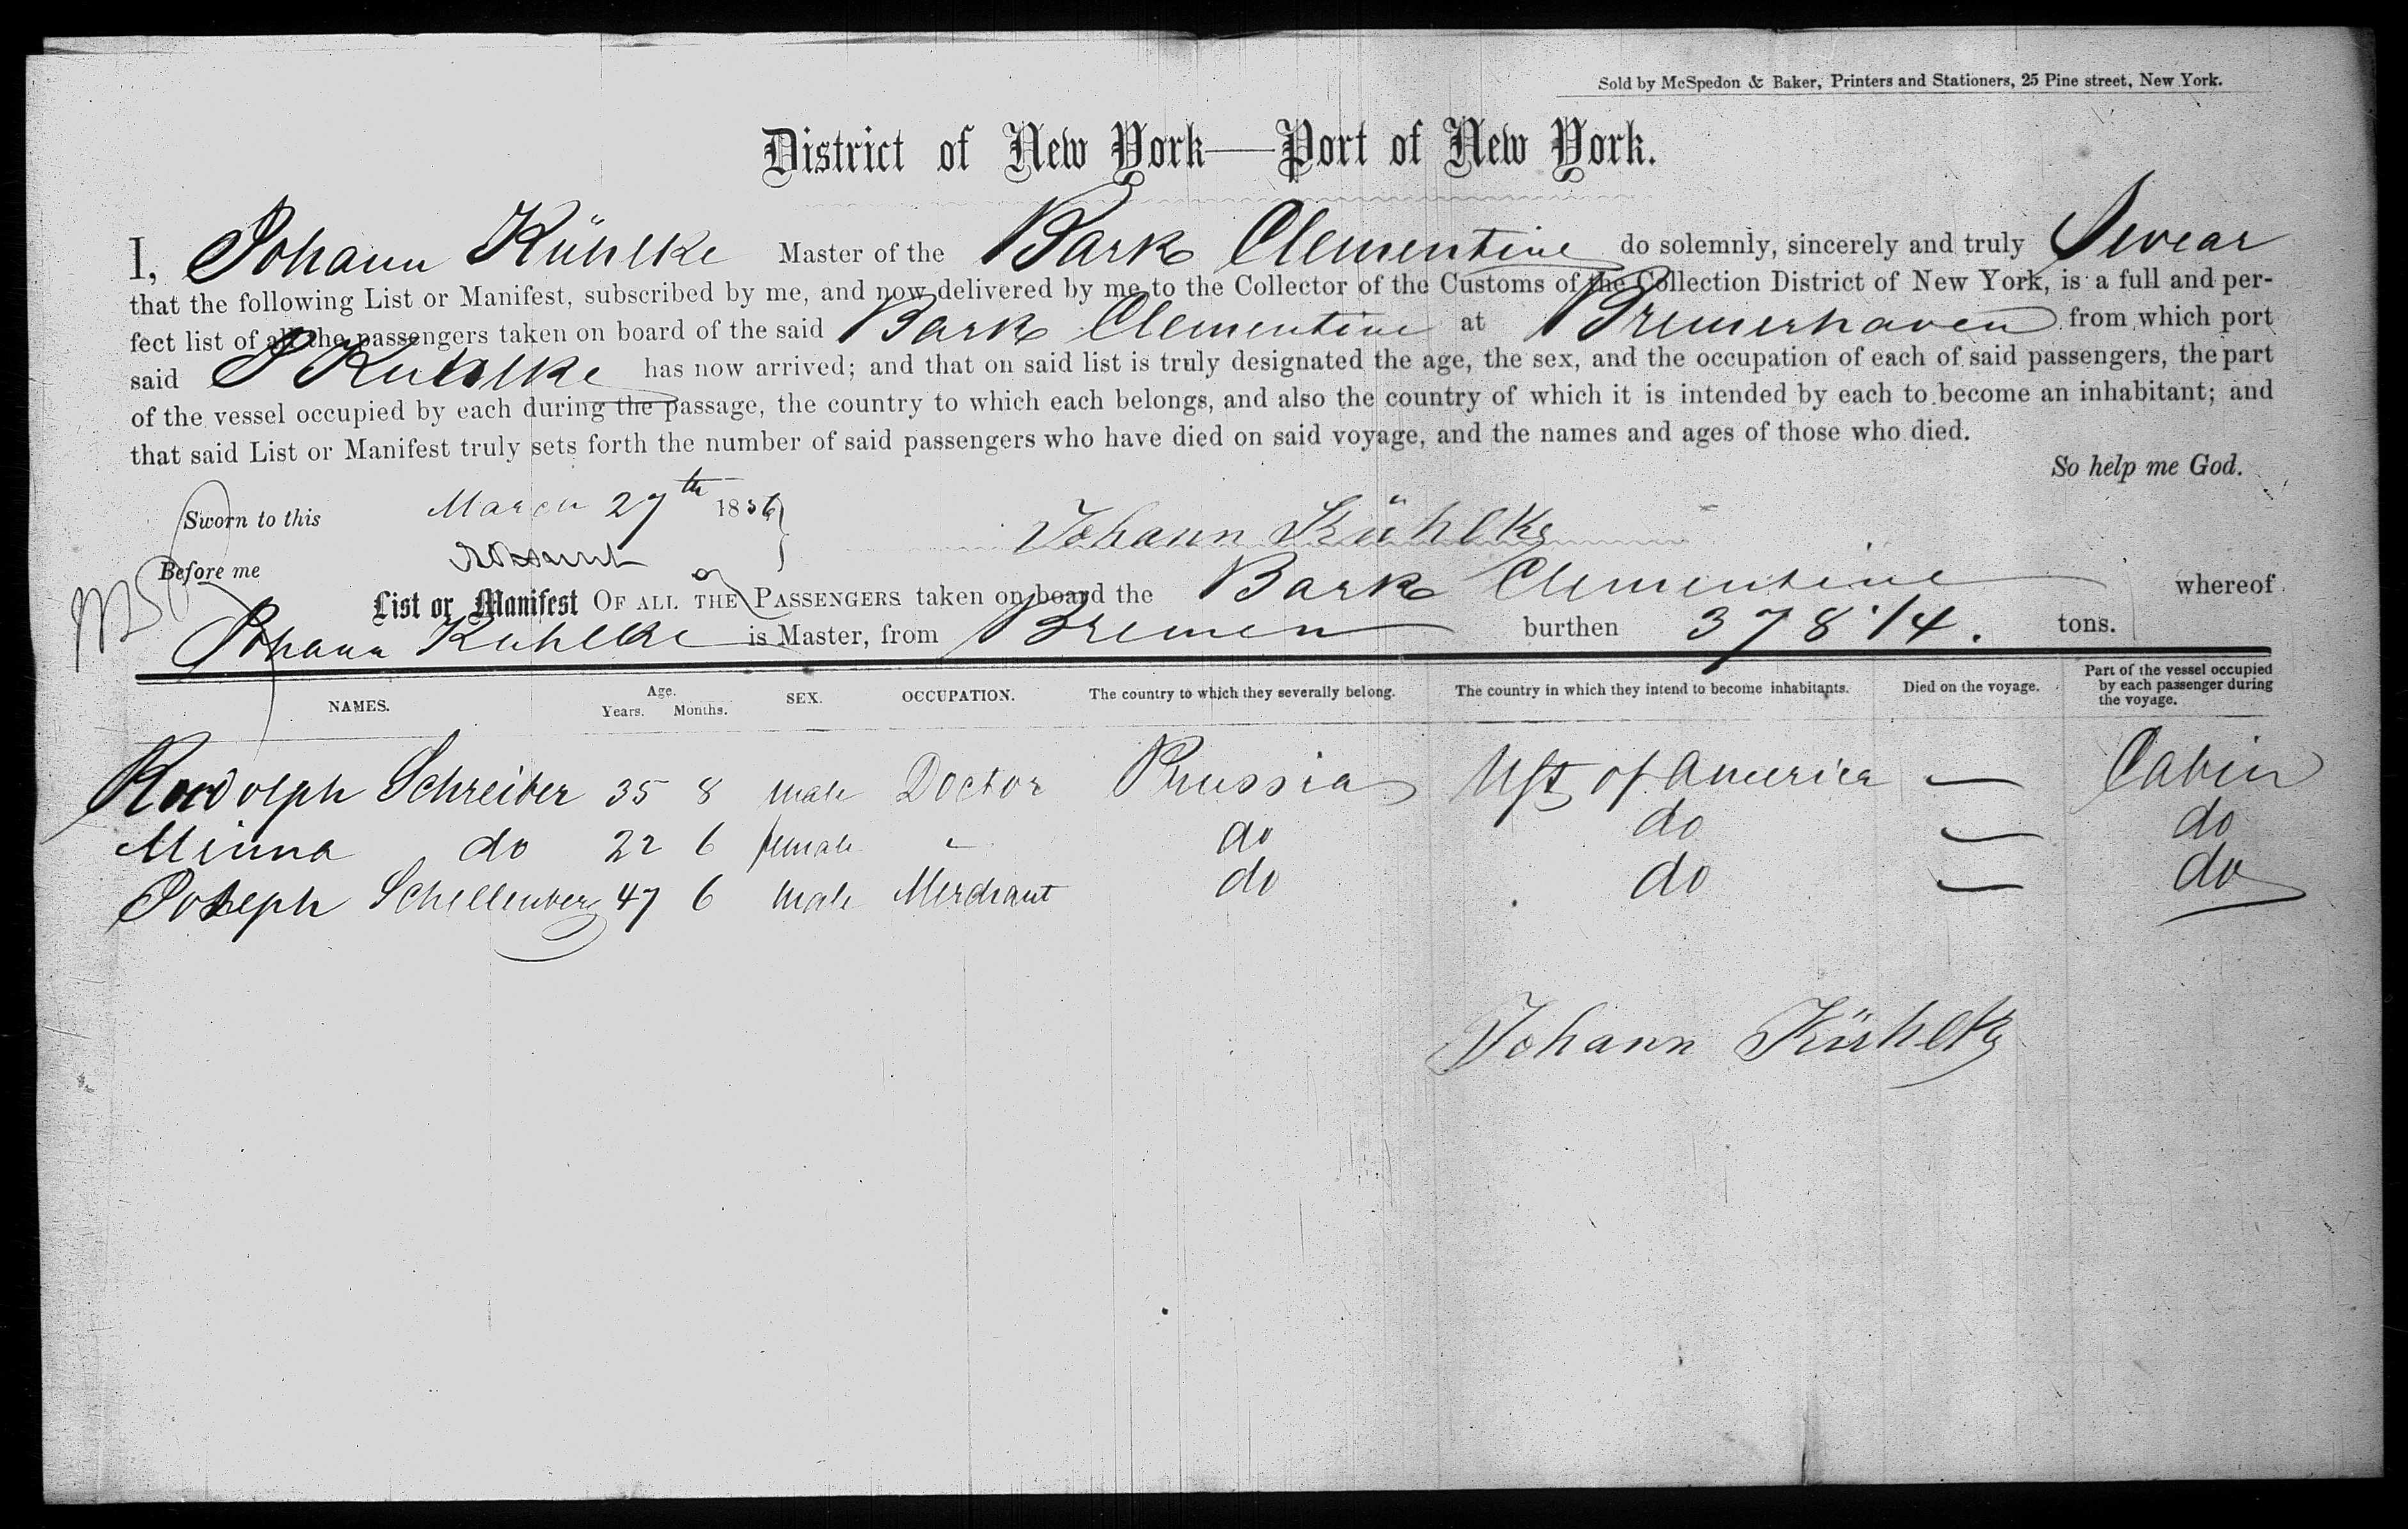 Sold by McSpedon & Baker, Printers and Stationers, 25 Pine street, New York.
District of New York—Port of New York.
I, Johann Kühlke Master of the Bark Clementine do solemnly, sincerely and truly Swear
that the following List or Manifest, subscribed by me, and now delivered by me to the Collector of the Customs of the Collection District of New York, is a full and per-
fect list of all the passengers taken on board of the said Bark Clementine at Bremerhaven from which port
said J Kuhlke has now arrived; and that on said list is truly designated the age, the sex, and the occupation of each of said passengers, the part
of the vessel occupied by each during the passage, the country to which each belongs, and also the country of which it is intended by each to become an inhabitant; and
that said List or Manifest truly sets forth the number of said passengers who have died on said voyage, and the names and ages of those who died.
So help me God.
Sworn to this March 27th 1856
Johann Kühlke
Before me
List or Manifest OF ALL THE PASSENGERS taken on board the Bark Clementine whereof
Johann Kuhlke is Master, from Bremen burthen 378 1/4. tons.
NAMES. Age. Years. Months. SEX. OCCUPATION. The country to which they severally belong. The country in which they intend to become inhabitants. Died on the voyage. Part of the vessel occupied by each passenger during the voyage.
Rudolph Schreiber 35 8 male Doctor Prussia USt of America — Cabin
Minna do 22 6 female " do do — do
Joseph Schellenberg 47 6 male Merchant do do — do
Johann Kühlke